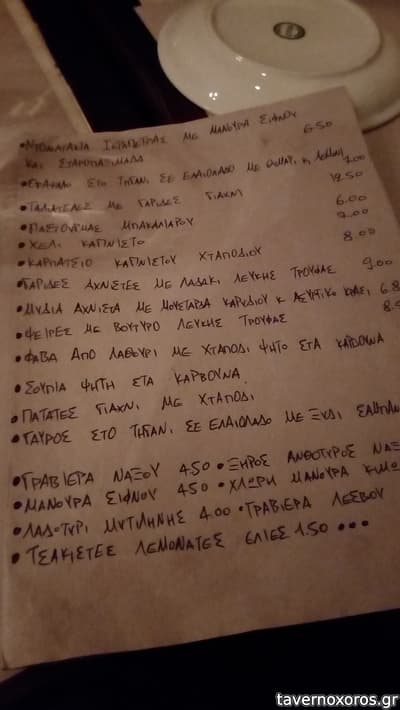 •ΝΤΟΜΑΤΑΚΙΑ ΙΕΡΑΠΕΤΡΑΣ ΜΕ ΜΑΝΟΥΡΑ ΣΙΦΝΟΥ
ΚΑΙ ΣΤΑΡΟΠΑΞΙΜΑΔΑ 6.50
ΣΤΟ ΤΗΓΑΝΙ ΣΕ ΕΛΑΙΟΛΑΔΟ ΜΕ ΘΥΜΑΡΙ Κ 7.00
•ΤΑΛΙΑΤΕΛΕΣ ΜΕ ΓΑΡΙΔΕΣ ΓΙΑΧΝΙ 12.50
•ΠΑΣΤΟΥΡΜΑΣ ΜΠΑΚΑΛΙΑΡΟΥ 6.00
•ΧΕΛΙ ΚΑΠΝΙΣΤΟ 7.00
•ΚΑΡΠΑΤΣΙΟ ΚΑΠΝΙΣΤΟΥ ΧΤΑΠΟΔΙΟΥ 8.00
•ΓΑΡΙΔΕΣ ΑΧΝΙΣΤΕΣ ΜΕ ΛΑΔΑΚΙ ΛΕΥΚΗΣ ΤΡΟΥΦΑΣ 9.00
•ΜΥΔΙΑ ΑΧΝΙΣΤΑ ΜΕ ΜΟΥΣΤΑΡΔΑ ΚΑΡΥΔΙΟΥ Κ ΑΣΥΡΤΙΚΟ 6.8
•ΨΕΙΡΕΣ ΜΕ ΒΟΥΤΥΡΟ ΛΕΥΚΗΣ ΤΡΟΥΦΑΣ 8.
•ΦΑΒΑ ΑΠΟ ΛΑΘΟΥΡΙ ΜΕ ΧΤΑΠΟΔΙ ΨΗΤΟ ΣΤΑ ΚΑΡΒΟΥΝΑ
•ΣΟΥΠΙΑ ΨΗΤΗ ΣΤΑ ΚΑΡΒΟΥΝΑ
•ΠΑΤΑΤΕΣ ΓΙΑΧΝΙ ΜΕ ΧΤΑΠΟΔΙ
•ΓΑΥΡΟΣ ΣΤΟ ΤΗΓΑΝΙ ΣΕ ΕΛΑΙΟΛΑΔΟ ΜΕ ΞΥΔΙ ΣΑΜΠΑΝ
•ΓΡΑΒΙΕΡΑ ΝΑΞΟΥ 4.50 •ΞΗΡΟΣ ΑΝΘΟΤΥΡΟΣ ΝΑΞ
•ΜΑΝΟΥΡΑ ΣΙΦΝΟΥ 4.50 •ΧΛΩΡΗ ΜΑΝΟΥΡΑ ΚΙΜΩ
•ΛΑΔΟΤΥΡΙ ΜΥΤΙΛΗΝΗΣ 4.00 •ΓΡΑΒΙΕΡΑ ΛΕΣΒΟΥ
•ΤΣΑΚΙΣΤΕΣ ΛΕΜΟΝΑΤΕΣ ΕΛΙΕΣ 1.50 •••
tavernoxoros.gr